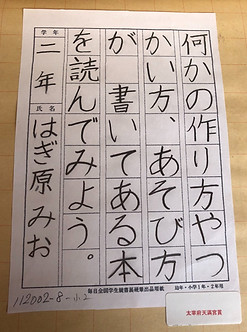 何かの作り方やつ
かい方、あそび方
が書いてある本
を読んでみよう。
学年
二年
氏名
はぎ原みお
毎日全国学生競書展硬筆出品用紙
幼年・小学1年・2年用
太宰府天満宮賞
112002-8-小2